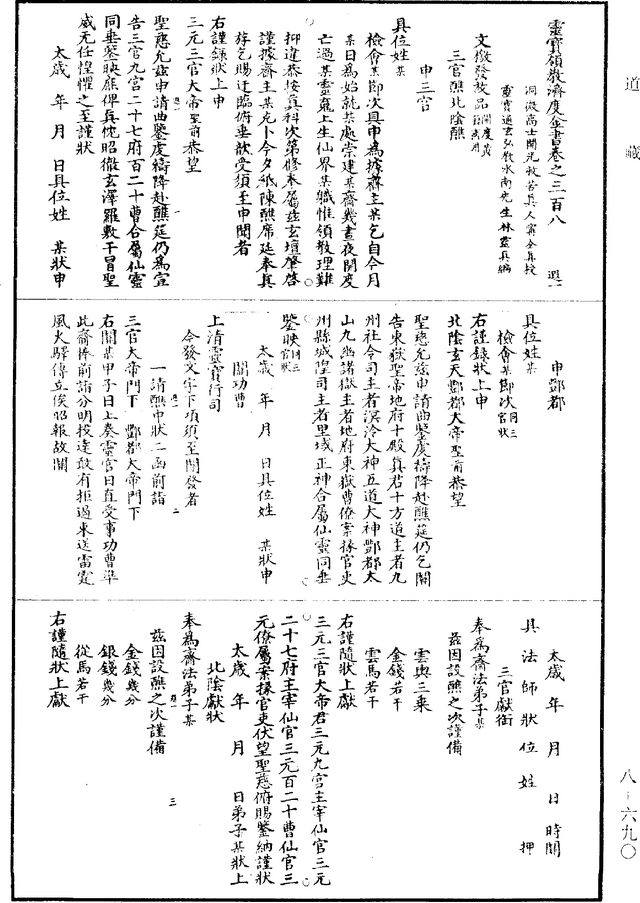 道藏
靈寶領教濟度金書卷之三百八
遐一
洞微高士開光救苦真人甯全真授
靈寶通玄弘教水南先生林靈真編
文檄發放品開度黃籙用
三官醮北陰醮
申三官
具位姓某
檢會某節次具申為據齋主某乞自今月
某日為始就某處崇建某齋幾晝夜開度
亡過某靈魂上生仙界某職惟領教理難
抑違恭按真科次第修奉屬茲玄壇肇啓
謹據齋主某允卜今夕祇陳醮席延奉真
旌乞賜迂臨俯垂歆受須至申聞者
右謹錄狀上申
三元三官大帝聖前恭望
聖慈允茲申請曲鑒虔禱降赴醮筵仍為宣
告三官九宮二十七府百二十曹合屬仙靈
同垂鑒映庶俾真忱昭徹玄澤羅敷干冒聖
威無任惶懼之至謹狀
太歲 年 月 日具位姓 某狀申
申酆都
具位姓某
檢會某節次同三官狀
右謹錄狀上申
北陰玄天酆都大帝聖前恭望
聖慈允茲申請曲鑒虔禱降赴醮筵仍乞關
告東嶽聖帝地府十殿真君十方道主者九
州社令司主者溟泠大神五道大神酆都太
山九幽諸獄主者地府東嶽曹僚案掾官吏
州縣城隍司主者里域正神合屬仙靈同垂
鑒映同三官狀
太歲 年 月 日具位姓 某狀申
關功曹
上清靈寶行司
今發文字下項須至關發者
一請醮申狀二函前詣
三官大帝門下 酆都大帝門下
右關某甲子日上奏靈官日直受事功曹準
此齋捧前詣分明投達敢有拒遏束送雷霆
風火驛傳立俟昭報故關
太歲 年 月 日 時關
具法師狀位姓 押
三官獻銜
奉為齋法弟子某
茲因設醮之次謹備
雲輿三乘
金錢若干
雲馬若干
右謹隨狀上獻
三元三官大帝君三元九宮主宰仙官三元
二十七府主宰仙官三元百二十曹仙官三
元僚屬案掾官吏伏望聖慈俯賜鑒納謹狀
太歲 年 月 日弟子某狀上
北陰獻狀
奉為齋法弟子某
茲因設醮之次謹備
金錢幾分
銀錢幾分
從馬若干
右謹隨狀上獻
遐一 二
遐一 三
八-六九〇